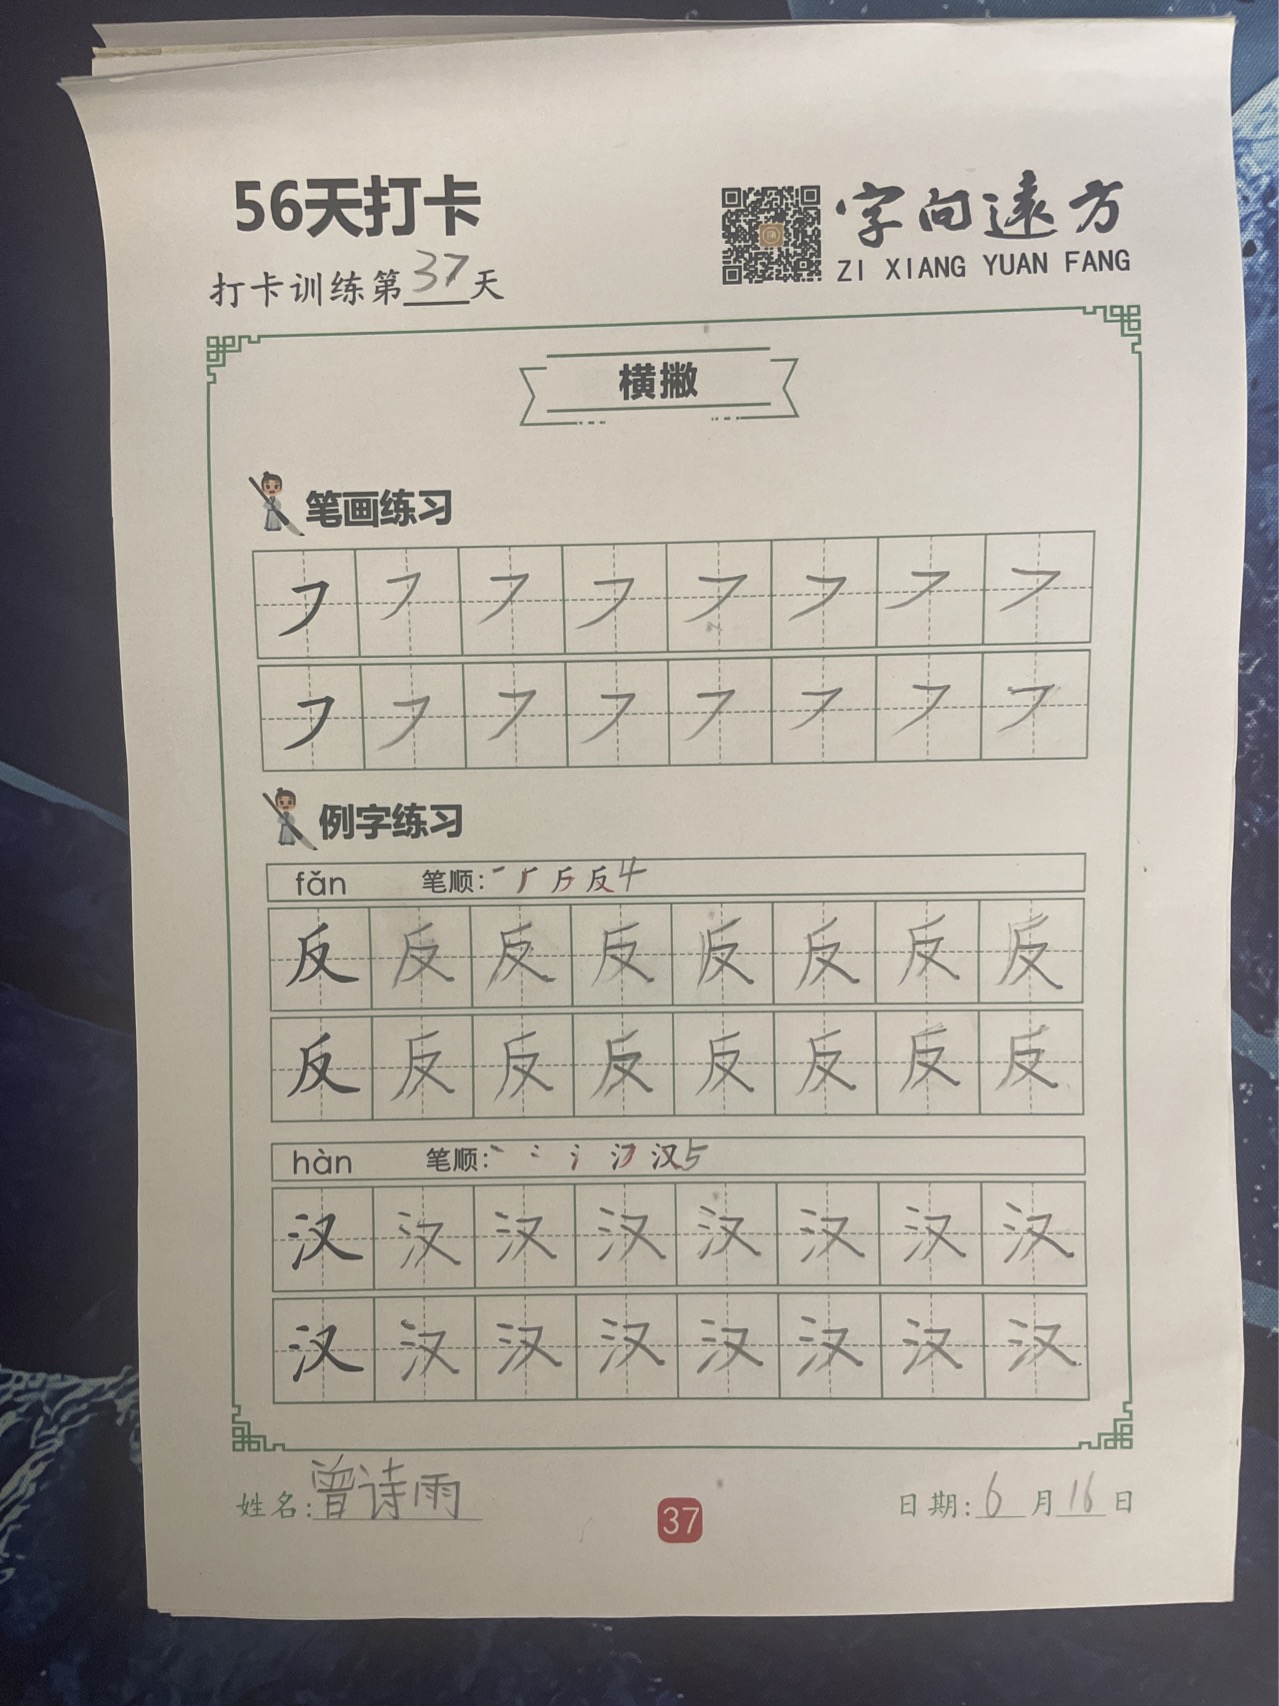 56天打卡
字向遠方
ZI XIANG YUAN FANG
打卡训练第37天
横撇
笔画练习
㇇ ㇇ ㇇ ㇇ ㇇ ㇇ ㇇ ㇇
㇇ ㇇ ㇇ ㇇ ㇇ ㇇ ㇇ ㇇
例字练习
fǎn 笔顺: 一 厂 反 4
反 反 反 反 反 反 反 反
反 反 反 反 反 反 反 反
hàn 笔顺: 丶 冫 氵 汉 5
汉 汉 汉 汉 汉 汉 汉 汉
汉 汉 汉 汉 汉 汉 汉 汉
姓名:曾诗雨
37
日期:6月16日